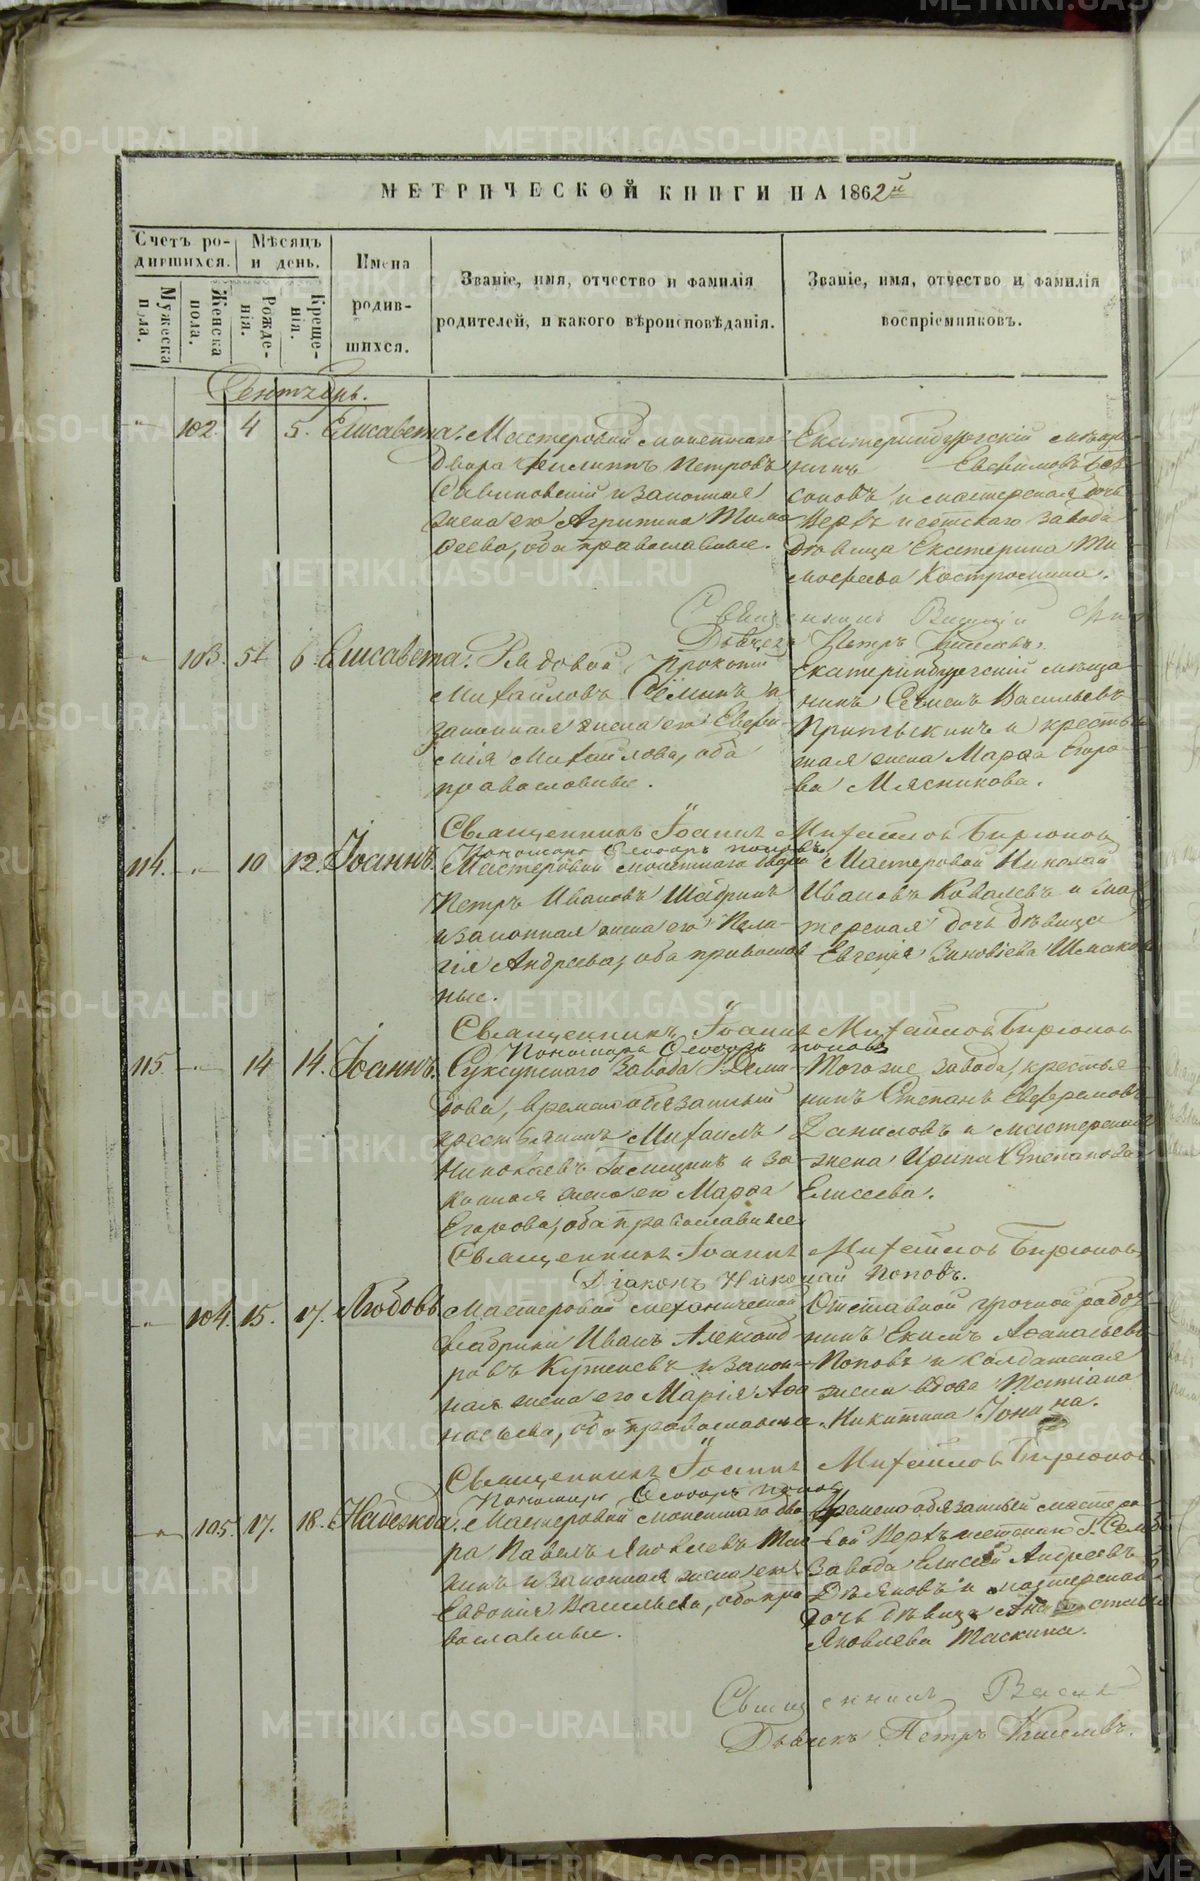 МЕТРИЧЕСКОЙ КНИГИ НА 1862й
Счетъ ро-
дившихся.
Мѣсяцъ
и день.
Имена
родив-
шихся.
Званіе, имя, отчество и фамилія
родителей, и какого вѣроисповѣданія.
Званіе, имя, отчество и фамилія
воспріемниковъ.
Мужеска
пола.
Женска
пола.
Рожде-
нія.
Креще-
нія.
Сентябрь.
102. 4 5. Елисавета.
Мастеровый монетнаго
двора Филиппъ Петровъ
и законная
жена его Агрипина Тимо
оба православные.
Екатеринбургскій мѣща-
нинъ
и мастерская дочь
Верхъ исетскаго завода
дѣвица Екатерина Ти
моѳеева Костромина.
Дьячекъ Петръ Киселевъ.
103. 5 6 Елисавета.
Рядовой Прокопій
Михайловъ Сёминъ и
законная жена его Евфи-
мія Михайлова, оба
православные.
Екатеринбургскій мѣща
нинъ Семенъ Васильевъ
и крестьян
ская жена Марѳа Егоро-
ва Мясникова.
Священникъ Іоаннъ Михайловъ Бирюковъ
Пономарь Ѳеодоръ Поповъ
114. 10 12. Іоаннъ.
Мастеровый монетнаго двора
Петръ Ивановъ Шабринъ
и законная жена его Пела-
гія Андреева, оба православ
ные.
Мастеровой Николай
Ивановъ Ковалевъ и мас
терская дочь дѣвица
Евгенія Зиновіева
Священникъ Іоаннъ Михайловъ Бирюковъ
Пономарь Ѳеодоръ Поповъ
115 14 14. Іоаннъ.
Суксунскаго завода Г. Деми-
дова, временнообязанный
крестьянинъ Михаилъ
Николаевъ и за-
конная жена его Марѳа
Егорова, оба православные
Тогоже завода, крестья-
нинъ Степанъ Евфремовъ
Даниловъ и мастерская
жена Ирина Степанова
Елисеева.
Священникъ Іоаннъ Михайловъ Бирюковъ
Діаконъ Николай Поповъ.
104. 15. 17. Любовь
Мастеровый механической
фабрики Иванъ Александ-
ровъ и закон-
ная жена его Марія Аѳа
насьева, оба православные.
Отставной урочной работ
никъ Екимъ Аѳанасьевъ
Поповъ и солдатская
жена вдова Татіана
Никитина Іонина.
Священникъ Іоаннъ Михайловъ Бирюковъ
Пономарь Ѳеодоръ Поповъ
105. 17. 18. Надежда.
Мастеровый монетнаго дво
ра Павелъ Яковлевъ Тас-
кинъ и законная жена его
Евдокія Васильева, оба пра
вославные.
Временно обязанный масте ро
вой Верхъ исетскаго
завода Елисей Андреевъ
и мастерская
дочь дѣвица
Яковлева Таскина.
Священникъ
Дьячекъ Петръ Киселевъ.
METRIKI.GASO-URAL.RU